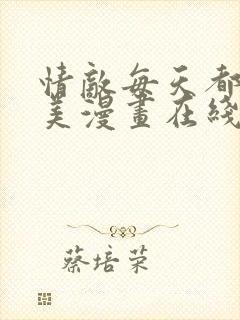 情敵每天都
美漫畫在綫
蔡培荣